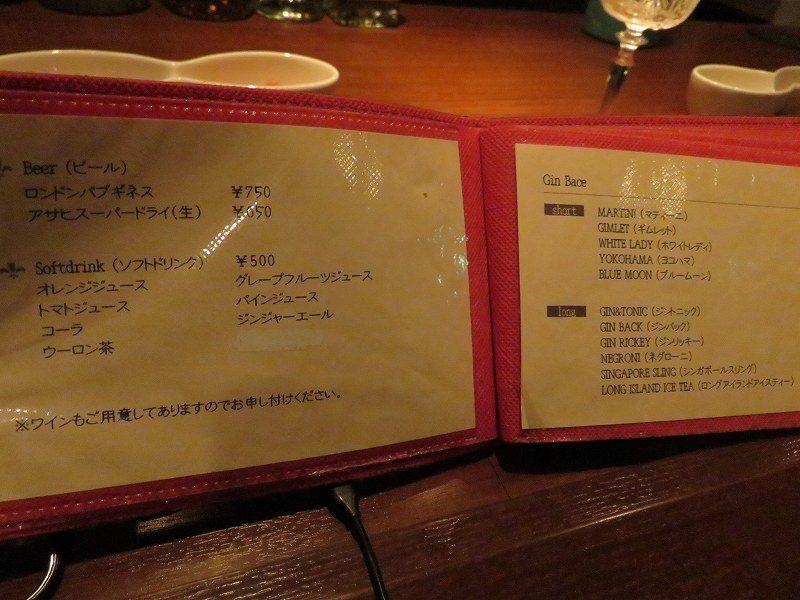 Beer (ビール)
ロンドンパブギネス ¥750
アサヒスーパードライ(生) ¥650
Softdrink (ソフトドリンク) ¥500
オレンジジュース グレープフルーツジュース
トマトジュース パインジュース
コーラ ジンジャーエール
ウーロン茶
※ワインもご用意してありますのでお申し付けください。
Gin Bace
short MARTINI (マティーニ)
GIMLET (ギムレット)
WHITE LADY (ホワイトレディ)
YOKOHAMA (ヨコハマ)
BLUE MOON (ブルームーン)
long GIN&TONIC (ジントニック)
GIN BACK (ジンバック)
GIN RICKEY (ジンリッキー)
NEGRONI (ネグローニ)
SINGAPORE SLING (シンガポールスリング)
LONG ISLAND ICE TEA (ロングアイランドアイスティー)